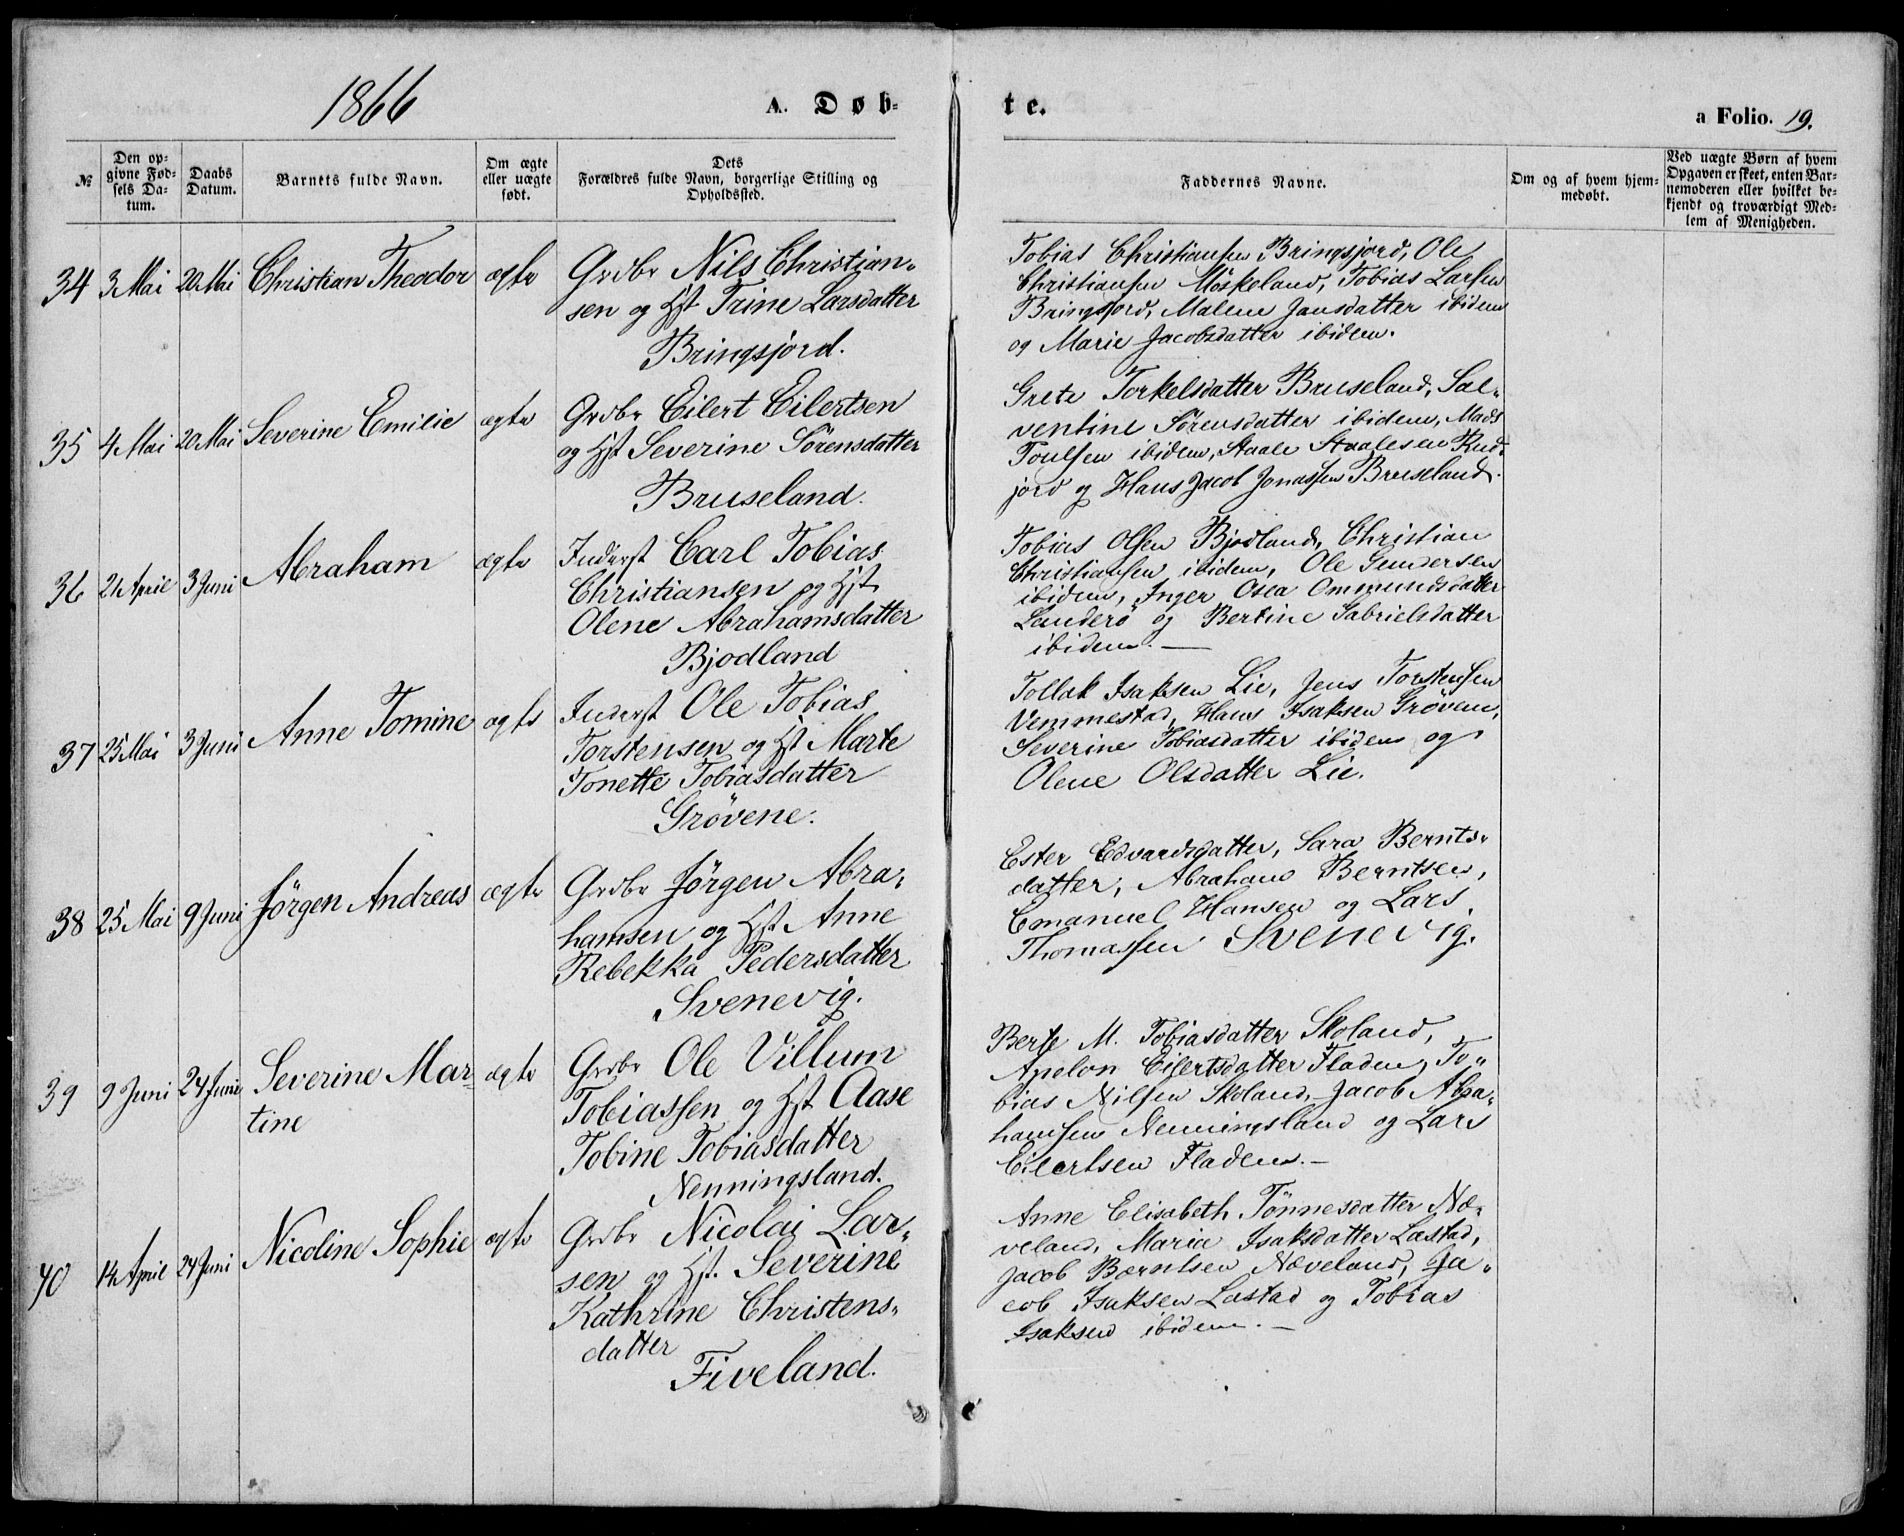 1866
A. Døb-
te.
a Folio. 19.
№
Den op-
givne Fød-
sels Da-
tum.
Daabs
Datum.
Barnets fulde Navn.
Om ægte
eller uægte
født.
Dets
Forældres fulde Navn, borgerlige Stilling og
Opholdssted.
Faddernes Navne.
Om og af hvem hjem-
medøbt.
Ved uægte Børn af hvem
Opgaven er skeet, enten Bar-
nemoderen eller hvilket be-
kjendt og troværdigt Med-
lem af Menigheden.
34 3 Mai 20 Mai Christian Theodor ægte
Grdbr Nils Christian-
sen og Hst Trine Larsdatter
Bringsjord.
Tobias Christiansen Bringsjord, Ole
Christiansen Möskeland, Tobias Larsen
Bringsjord, Malene Jansdatter ibidem
og Marie Jacobsdatter ibidem.
35 4 Mai 20 Mai Severine Emilie ægte
Grdbr Eilert Eilertsen
og Hst Severine Sörensdatter
Bruseland.
Grete Torkelsdatter Bruseland, Sal-
ventine Sörensdatter ibidem, Mads
Toulsen ibidem, Staale Staalesen Rud-
jord og Hans Jacob Jonassen Bruseland.
36 21 April 3 Juni Abraham ægte
Inderst Carl Tobias
Christiansen og Hst
Olene Abrahamsdatter
Bjodland
Tobias Olsen Bjodland, Christian
Christiansen ibidem, Ole Gundersen
ibidem, Inger Osea Ommundsdatter
Landerö og Bertine Gabrielsdatter
ibidem. —
37 25 Mai 3 Juni Anne Tomine ægte
Inderst Ole Tobias
Torstensen og Hst Marte
Tonette Tobiasdatter
Grövene.
Tollak Isaksen Lie, Jens Torstensen
Vemmestad, Hans Isaksen Grövem,
Severine Tobiasdatter ibidem og
Olene Olsdatter Lie.
38 25 Mai 9 Juni Jörgen Andreas ægte
Grdbr Jörgen Abra-
hamsen og Hst Anne
Rebekka Pedersdatter
Svenevig.
Ester Edvardsdatter, Sara Bernts-
datter, Abraham Berntsen,
Emanuel Hansen og Lars
Thomassen Svenevig.
39 9 Juni 24 Juni Severine Mar-
tine
ægte
Grdbr Ole Villum
Tobiassen og Hst Aase
Tobine Tobiasdatter
Nenningsland.
Berte M. Tobiasdatter Skoland,
Apelon Eilertsdatter Fladen, To-
bias Nilsen Skoland, Jacob Abra-
hamsen Nenningsland og Lars
Eilertsen Fladem. —
40 14 April 24 Juni Nicoline Sophie ægte
Grdbr Nicolai Lar-
sen og Hst. Severine
Kathrine Christens-
datter
Fiveland.
Anne Elisabeth Tönnesdatter Næ-
veland, Maria Isaksdatter Lastad,
Jacob Bærntsen Næveland, Ja-
cob Isaksen Lastad og Tobias
Isaksen ibidem. —